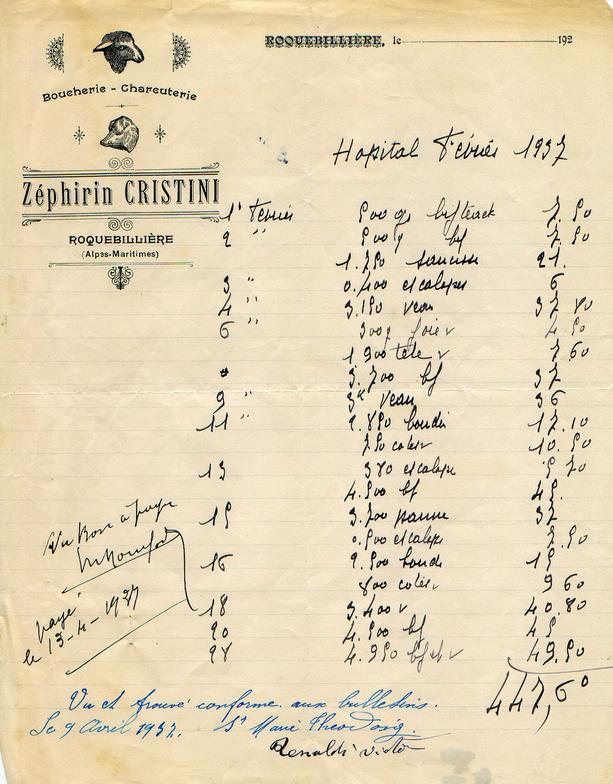 ROQUEBILLIÈRE, le 192
Boucherie - Charcuterie
Zéphirin CRISTINI
ROQUEBILLIÈRE
(Alpes-Maritimes)
Hopital Février 1937
1 Février 500 g bifteack 7.50
2 " 500 g bf 7.50
1.750 saucisse 21.
3 " 0.400 escalopes 6
4 " 3.150 veau 37 80
6 " 300 g foie v 4 50
1 900 tete v 7 60
3.700 bf 37
9 " 3k veau 36
11 " 2.850 boudin 17.10
750 cotes v 10.50
13 380 escalope 5 70
4.500 bf 45.
15 3.700 panne 37
0.500 escalope 7.50
16 2.500 boudin 15
800 cotes v 9 60
18 3.400 v 40.80
20 4.500 bf 45
28 4.950 bf et v 49.50
447,60
Vu Bon à payer
payé
le 13-4-1937
Vu et trouvé conforme aux bulletins.
Le 9 Avril 1937. Sr Marie
Renaldi Victor